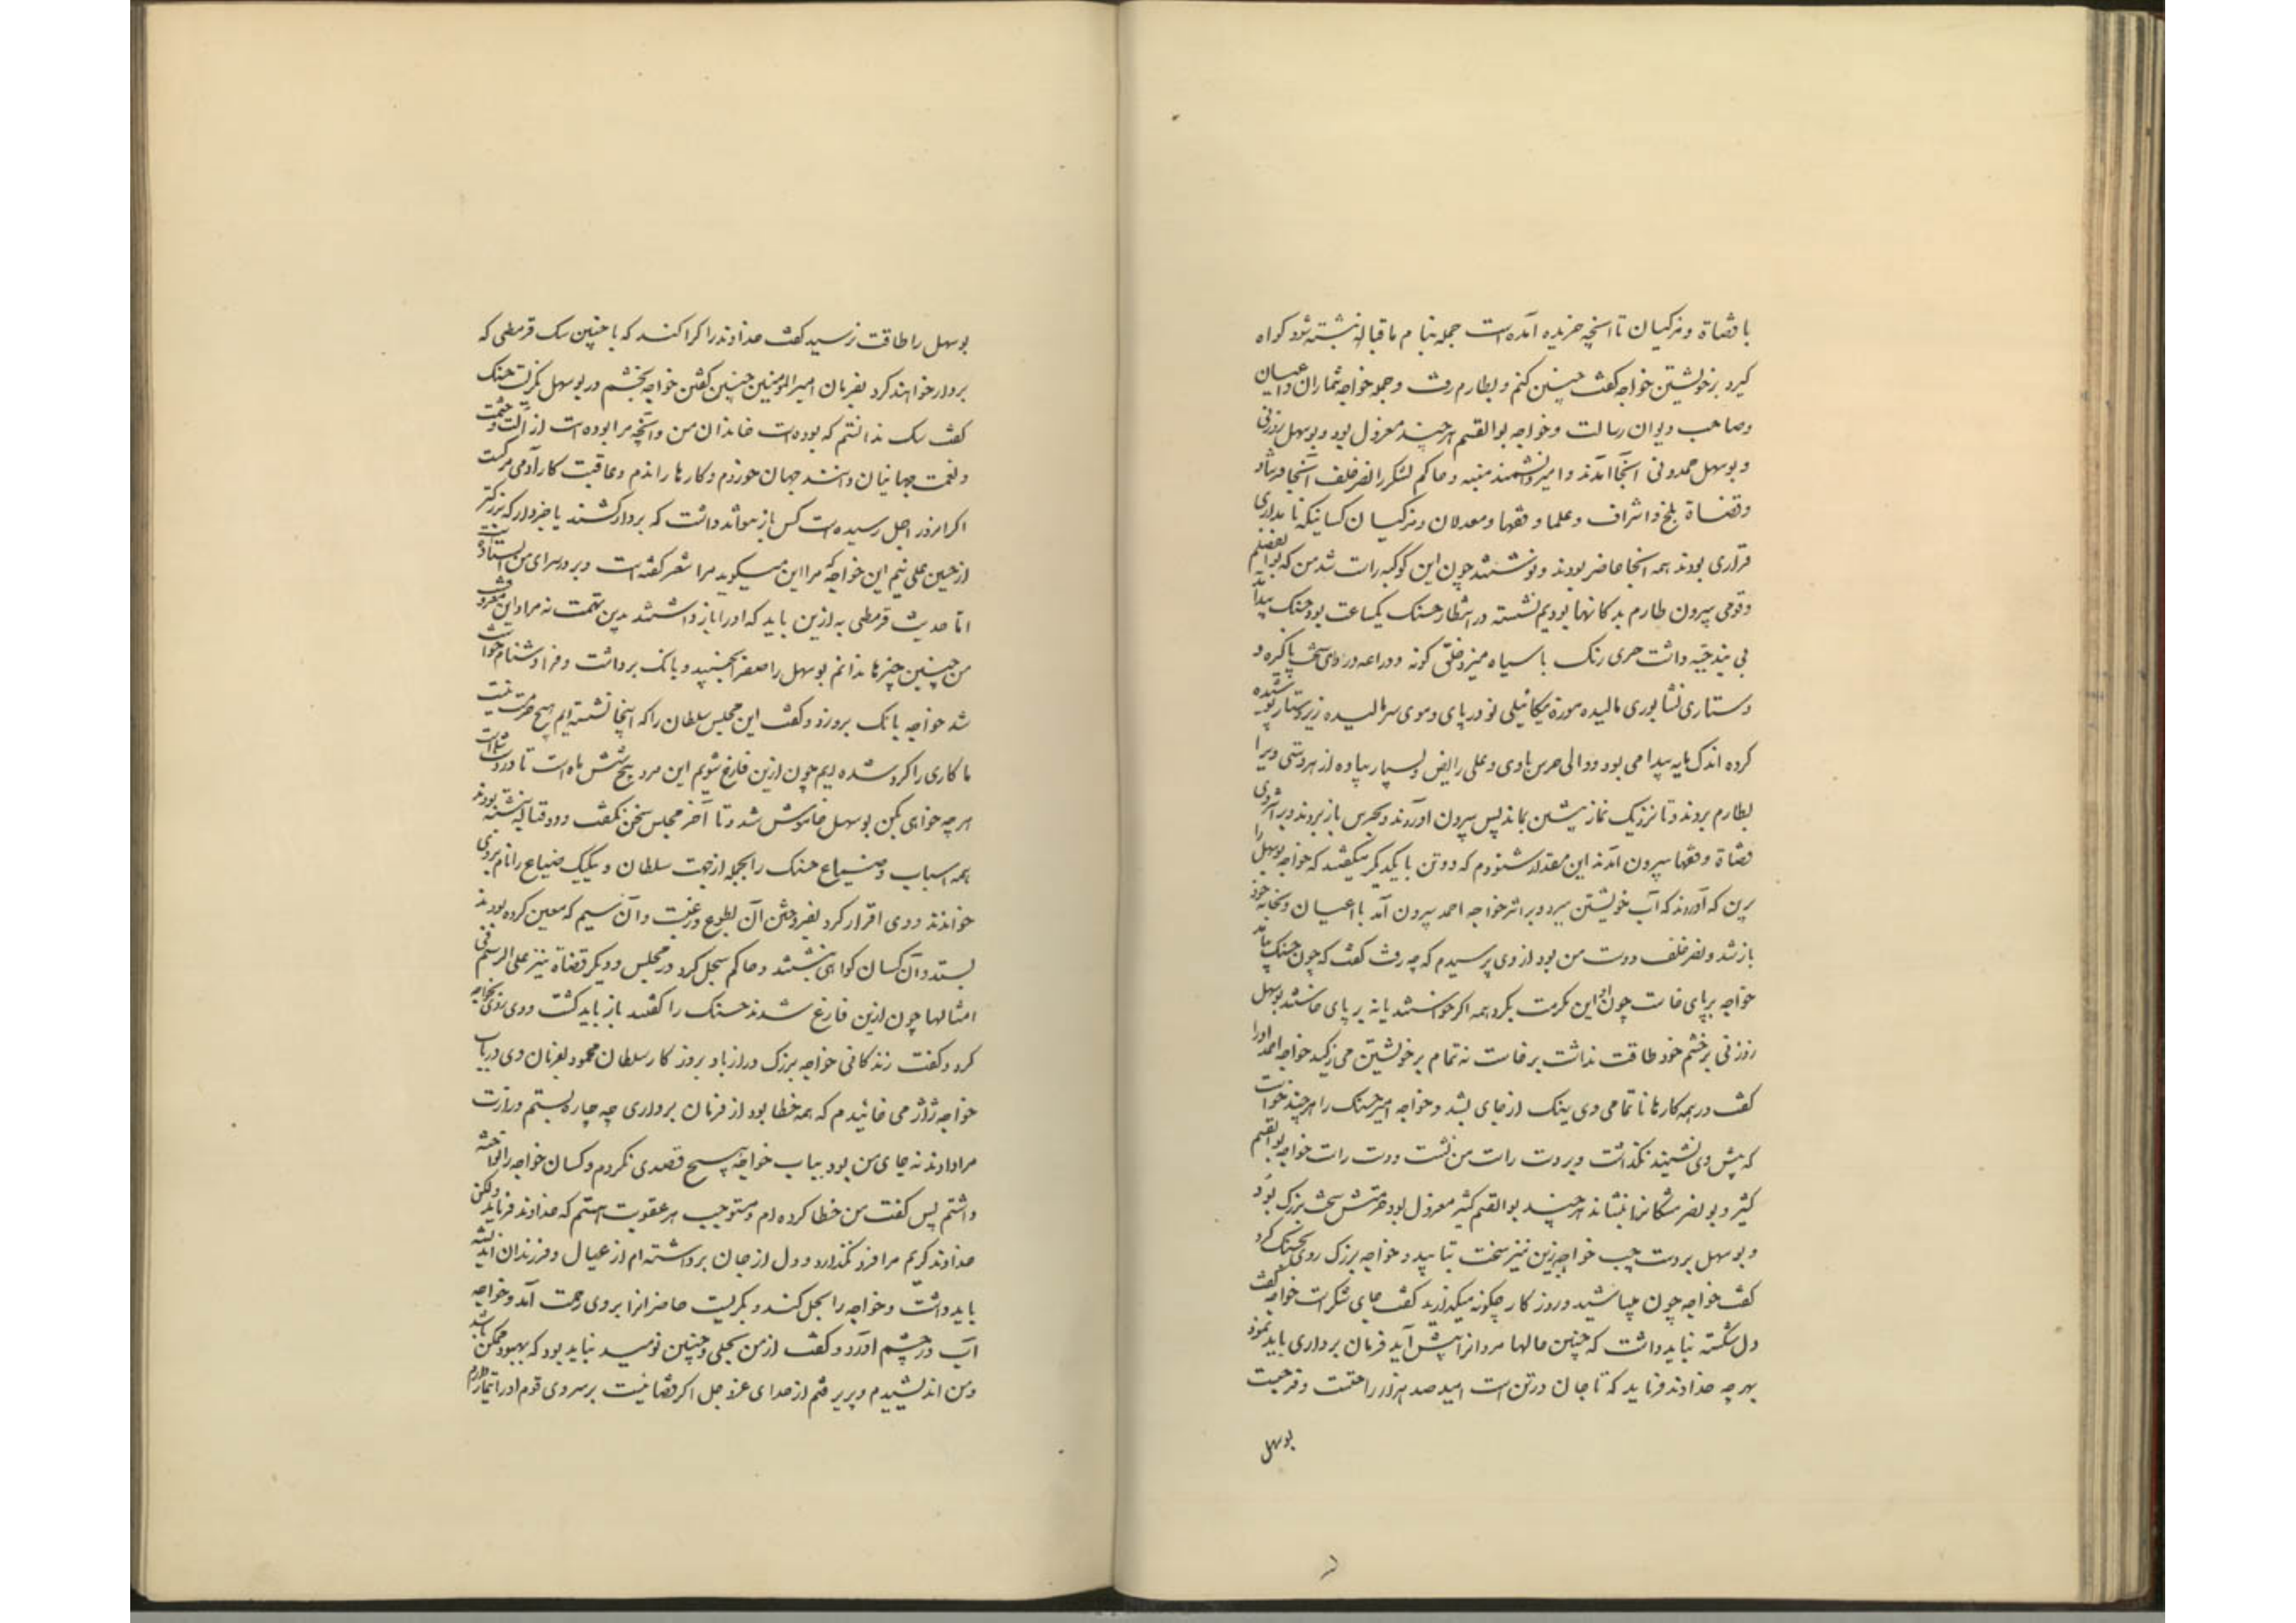 با قضاة و مزکیان تا آنچه خریده آمده است جمله بنام ما قباله نبشته شود و کواه
کیرد بر خویشتن خواجه کفت چنین کنم و بطارم رفت و جمله خواجه شماران و اعیان
و صاحب دیوان رسالت و خواجه بوالقسم هرچند معزول بود و بوسهل زوزنی
و بوسهل حمدونی آنجا آمدند و امیر دانشمند منبه و حاکم لشکر را نصر خلف آنجا فرستاد
و قضاة بلخ و اشراف و علما و فقها و معدلان و مزکیان کسانیکه نامداری
قراری بودند همه آنجا حاضر بودند و نوشتند چون این کوکبه راست شد من که بوالفضلم
و قومی بیرون طارم بدکانها بودیم نشسته در انتظار حسنک یکساعت بود حسنک پیدا آمد
بی بند جبّه داشت حری رنک با سیاه میزد خلق کونه و دراعه و ردای سخت پاکیزه و
دستاری نشابوری مالیده موزهٔ میکائیلی نو در پای و موی سر مالیده زیر دستار پوشیده
کرده اندک مایه پیدا می بود و والی حرس با وی و علی رایض و بسیار پیاده از هر دستی ویرا
بطارم بردند و تا نزدیک نماز پیشین بماند پس بیرون آوردند و بحرس باز بردند و بر اثر وی
قضاة و فقها بیرون آمدند این مقدار شنودم که دو تن با یکدیکر میکفتند که خواجه بوسهل را
برین که آورد که آب خویشتن ببرد و بر اثر خواجه احمد بیرون آمد با اعیان و بخانه خود
باز شد و نصر خلف دوست من بود از وی پرسیدم که چه رفت کفت که چون حسنک بیامد
خواجه بر پای خاست چون او این مکرمت بکرد همه اکر خواستند یا نه بر پای خاستند بوسهل
زوزنی بر خشم خود طاقت نداشت برخاست نه تمام بر خویشتن می ژکید خواجه احمد اورا
کفت در همه کارها ناتمامی وی نیک از جای بشد و خواجه امیر حسنک را هرچند خواست
که پیش وی نشیند نکذاشت و بر دست راست من نشست و دست راست خواجه بوالقسم
کثیر و بونصر مشکانرا بنشاند هرچند بوالقسم کثیر معزول بود حرمتش سخت بزرک بود
و بوسهل بر دست چپ خواجه زین نیز سخت بتابید و خواجه بزرک روی بحسنک کرد
کفت خواجه چون میباشید و روزکار چکونه میکذارید کفت جای شکر است خواجه کفت
دل شکسته نباید داشت که چنین حالها مردانرا پیش آید فرمان برداری باید نمود
بهر چه خداوند فرماید که تا جان در تن است امید صد هزار راحتست و فرجست
بوسهل
بوسهل را طاقت نرسید کفت خداوند را کرا کند که با چنین سک قرمطی که
بر دار خواهند کرد بفرمان امیرالمومنین چنین کفتن خواجه بخشم در بوسهل نکریست حسنک
کفت سک ندانستم که بوده است خاندان من و آنچه مرا بوده است از آلت و حشمت
و نعمت جهانیان دانند جهان خوردم و کارها راندم و عاقبت کار آدمی مرکست
اکر امروز اجل رسیده است کس باز نتواند داشت که بر دار کشند یا جز دار که بزرکتر
از حسین علی نیم این خواجه که مرا این میکوید مرا شعر کفته است و بر در سرای من ایستاده است
امّا حدیث قرمطی به ازین باید که اورا باز داشتند بدین تهمت نه مرا و این معروفست
من چنین چیزها ندانم بوسهل را صفرا بجنبید و بانک برداشت و فرا دشنام خواست
شد خواجه بانک بر وزد و کفت این مجلس سلطان را که اینجا نشسته ایم هیچ حرمت نیست
ما کاری را کرد شده ایم چون ازین فارغ شویم این مرد پنج شش ماه است تا در دست شماست
هر چه خواهی بکن بوسهل خاموش شد و تا آخر مجلس سخن نکفت و دو قباله نبشته بودند
همه اسباب و ضیاع حسنک را بجمله از جهت سلطان و یکیک ضیاع را نام بر وی
خواندند و وی اقرار کرد بفروختن آن بطوع و رغبت و آن سیم که معین کرده بودند
بستد و آن کسان کواهی نبشتند و حاکم سجل کرد در مجلس و دیکر قضاة نیز علی الرسم فی
امثالها چون ازین فارغ شدند حسنک را کفتند باز باید کشت و وی روی بخواجه
کرد و کفت زندکانی خواجه بزرک دراز باد بروزکار سلطان محمود بفرمان وی در باب
خواجه ژاژ می خائیدم که همه خطا بود از فرمان برداری چه چاره بستم وزارت
مرا دادند نه جای من بود بباب خواجه هیچ قصدی نکردم و کسان خواجه را نواخته
داشتم پس کفت من خطا کرده ام و مستوجب هر عقوبت هستم که خداوند فرماید ولکن
خداوند کریم مرا فرو نکذارد و دل از جان برداشته ام از عیال و فرزندان اندیشه
باید داشت و خواجه مرا بحل کند و بکریست حاضرانرا بر وی رحمت آمد و خواجه
آب در چشم آورد و کفت از من بحلی و چنین نومید نباید بود که بهبود ممکن باشد
و من اندیشیدم و پذیرفتم از خدای عزوجل اکر قضائیست بر سر وی قوم اورا تیمار دارم